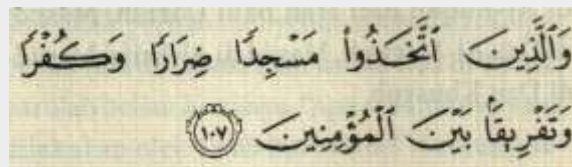 وَالَّذِينَ اتَّخَذُوا مَسْجِدًا ضِرَارًا وَكُفْرًا
وَتَفْرِيقًا بَيْنَ الْمُؤْمِنِينَ ١٠٧